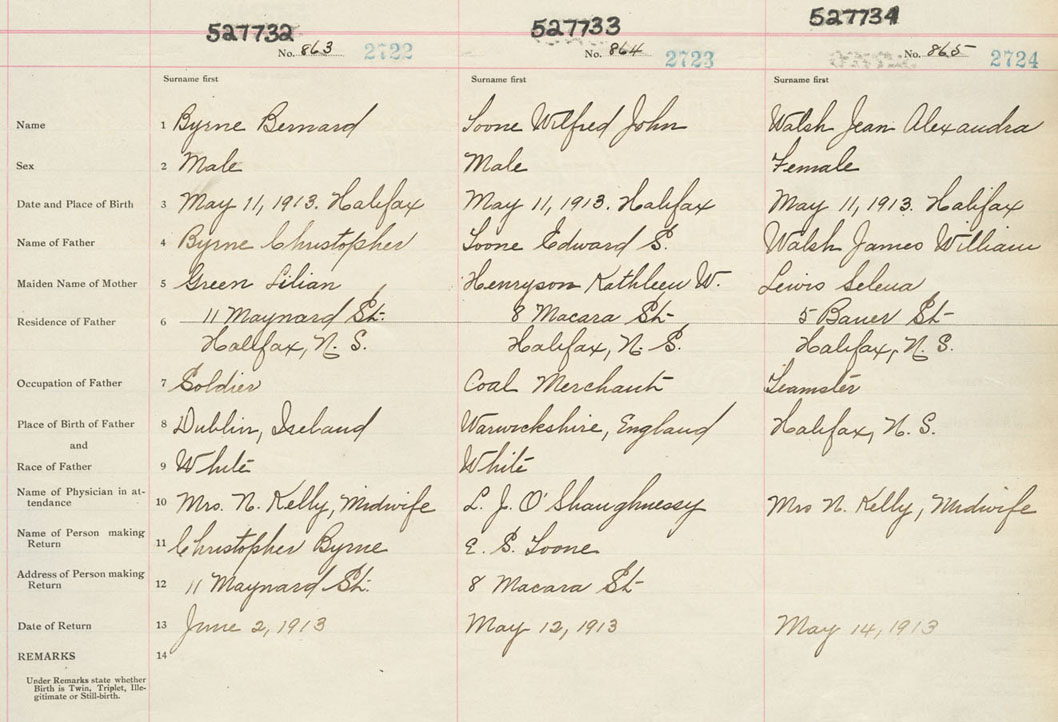 527732 527733 527734
No. 863 2722 No. 864 2723 No. 865 2724
Surname first Surname first Surname first
Name 1 Byrne Bernard Toone Wilfred John Walsh Jean Alexandra
Sex 2 Male Male Female
Date and Place of Birth 3 May 11, 1913. Halifax May 11, 1913. Halifax May 11, 1913. Halifax
Name of Father 4 Byrne Christopher Toone Edward S. Walsh James William
Maiden Name of Mother 5 Green Lilian Henryson Kathleen W. Lewis Selena
Residence of Father 6 11 Maynard St. 8 Macara St 5 Bauer St
Halifax, N. S. Halifax, N. S. Halifax, N. S.
Occupation of Father 7 Soldier Coal Merchant Teamster
Place of Birth of Father 8 Dublin, Ireland Warwickshire, England Halifax, N. S.
and
Race of Father 9 White White
Name of Physician in at-
tendance 10 Mrs. N. Kelly, Midwife L. J. O'Shaughnessy Mrs N. Kelly, Midwife
Name of Person making
Return 11 Christopher Byrne E. S. Toone
Address of Person making
Return 12 11 Maynard St. 8 Macara St
Date of Return 13 June 2, 1913 May 12, 1913 May 14, 1913
REMARKS 14
Under Remarks state whether
Birth is Twin, Triplet, Ille-
gitimate or Still-birth.